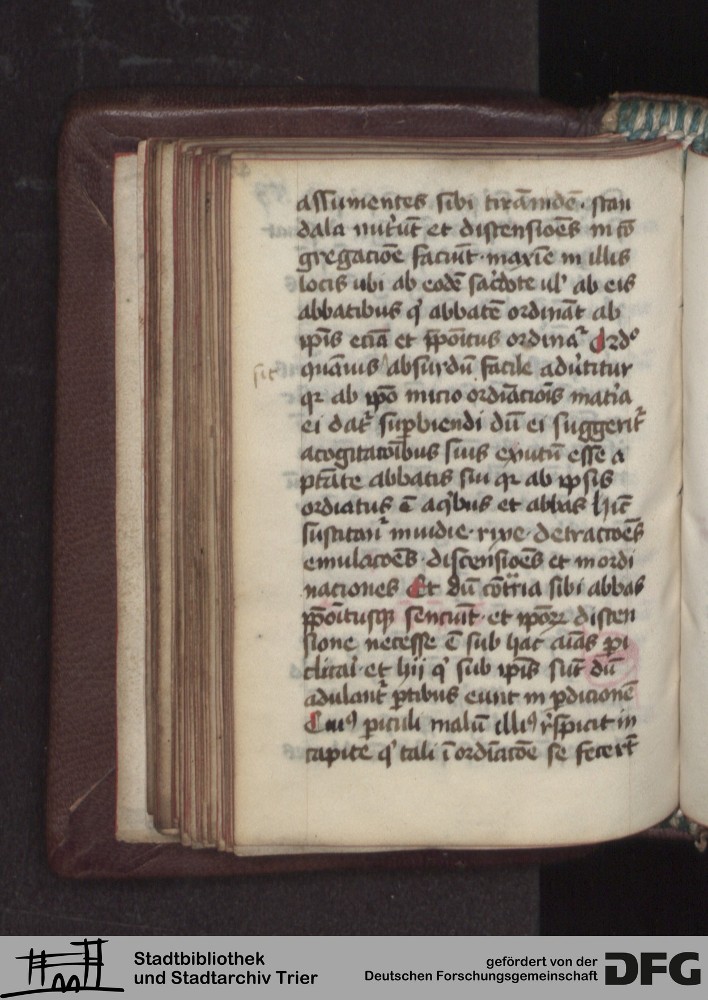 assumentes sibi tirānidē · scan
dala nut'ūt et discensiōēs in cō
gregaciōe faciūt · maxīe in illis
locis ubi ab eodē sac'dote ul' ab eis
abbatibus q' abbatē ordināt ab
ip̄is eciā et p̄pōitus ordinat' Ꝙd°
quāuis absurdū facile adu'titur
sit
qr ab ip̄o inicio ordīaciōīs mat'ia
ei dat' sup̱biendi dū ei suggerit'
acogitacōībus suis exutū esse a
ptāte abbatis sui qr ab ip̄sis
ordiatus ē aq'bus et abbas hīc
suscitant' inuidie · rixe · detractōēs
emulacōēs · discensiōēs et inordi
naciones Et dū cōt'ria sibi abbas
p̄pōitusqꝫ senciūt · et ip̄oꝝ discen
sione necesse ē sub hac aīas p̱i
clitari · et hij q' sub ip̄is sūt dū
adulant' p̱tibus eunt in p̱dicionē
Cuiꝰ p̱iculi malū illiꝰ r'spicit in
capite q' tali ī ordīacōe se fecer̄t
Stadtbibliothek
und Stadtarchiv Trier
gefördert von der
Deutschen Forschungsgemeinschaft
DFG